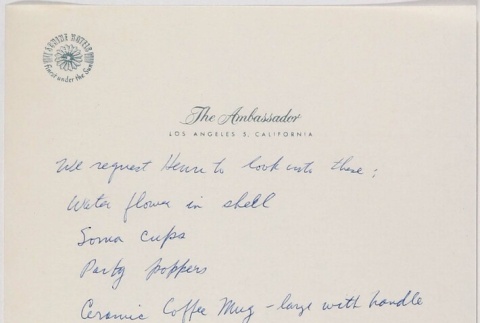 finest under the Sun
The Ambassador
LOS ANGELES 5, CALIFORNIA
We request Henri to look into these:
Water flower in shell
Soma cups
Party poppers
Ceramic Coffee Mug - large with handle